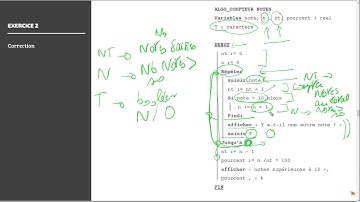 EXERCICE 2
Correction
Nb
NT → Notes saisies
N → Nb Notes >
10
T → booléen
N / O
ALGO_COMPTEUR NOTES
Variables note, n , nt, pourcent : reel
T : caractère
DEBUT
nt := 0
n := 0
Répéter
saisir note
nt := nt + 1
Si note > 10 alors
n := n + 1
FinSi
afficher « Y a-t-il une autre note ? »
saisir T
Jusqu'à
nt := n - 1
pourcent := n /nt * 100
afficher « notes supérieures à 10 »,
pourcent , « %
FIN
NT →
Compter
Notes
au total
N →
Notes
> 10
O